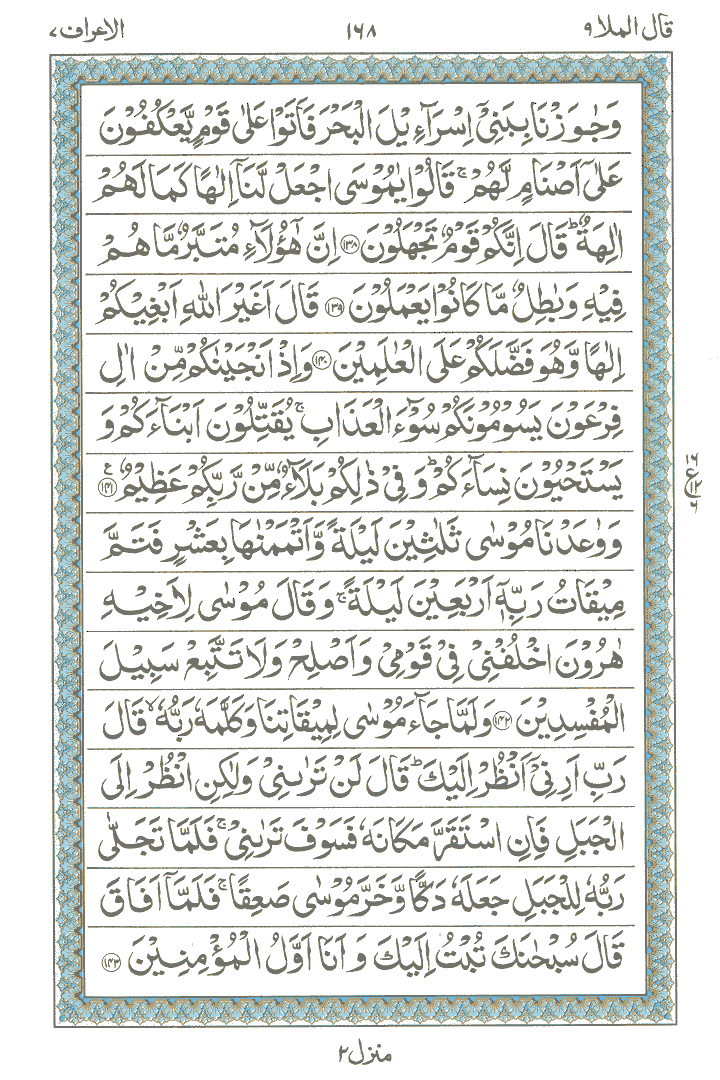 قال الملا ٩ ١٦٨ الاعراف ٧
وَجٰوَزْنَا بِبَنِيْٓ اِسْرَآءِيْلَ الْبَحْرَ فَاَتَوْا عَلٰى قَوْمٍ يَّعْكُفُوْنَ
عَلٰٓى اَصْنَامٍ لَّهُمْ ۚ قَالُوْا يٰمُوْسَى اجْعَلْ لَّنَآ اِلٰهًا كَمَا لَهُمْ
اٰلِهَةٌ ؕ قَالَ اِنَّكُمْ قَوْمٌ تَجْهَلُوْنَ ﴿۱۳۸﴾ اِنَّ هٰٓؤُلَآءِ مُتَبَّرٌ مَّا هُمْ
فِيْهِ وَبٰطِلٌ مَّا كَانُوْا يَعْمَلُوْنَ ﴿۱۳۹﴾ قَالَ اَغَيْرَ اللّٰهِ اَبْغِيْكُمْ
اِلٰهًا وَّهُوَ فَضَّلَكُمْ عَلَى الْعٰلَمِيْنَ ﴿۱۴۰﴾ وَاِذْ اَنْجَيْنٰكُمْ مِّنْ اٰلِ
فِرْعَوْنَ يَسُوْمُوْنَكُمْ سُوْٓءَ الْعَذَابِ ۚ يُقَتِّلُوْنَ اَبْنَآءَكُمْ وَ
يَسْتَحْيُوْنَ نِسَآءَكُمْ ؕ وَفِيْ ذٰلِكُمْ بَلَآءٌ مِّنْ رَّبِّكُمْ عَظِيْمٌ ﴿۱۴۱﴾ ع
١٦
ع
١٢
٦
وَوٰعَدْنَا مُوْسٰى ثَلٰثِيْنَ لَيْلَةً وَّاَتْمَمْنٰهَا بِعَشْرٍ فَتَمَّ
مِيْقَاتُ رَبِّهٖٓ اَرْبَعِيْنَ لَيْلَةً ۚ وَقَالَ مُوْسٰى لِاَخِيْهِ
هٰرُوْنَ اخْلُفْنِيْ فِيْ قَوْمِيْ وَاَصْلِحْ وَلَا تَتَّبِعْ سَبِيْلَ
الْمُفْسِدِيْنَ ﴿۱۴۲﴾ وَلَمَّا جَآءَ مُوْسٰى لِمِيْقَاتِنَا وَكَلَّمَهٗ رَبُّهٗ ۙ قَالَ
رَبِّ اَرِنِيْٓ اَنْظُرْ اِلَيْكَ ؕ قَالَ لَنْ تَرٰىنِيْ وَلٰكِنِ انْظُرْ اِلَى
الْجَبَلِ فَاِنِ اسْتَقَرَّ مَكَانَهٗ فَسَوْفَ تَرٰىنِيْ ۚ فَلَمَّا تَجَلّٰى
رَبُّهٗ لِلْجَبَلِ جَعَلَهٗ دَكًّا وَّخَرَّ مُوْسٰى صَعِقًا ۚ فَلَمَّآ اَفَاقَ
قَالَ سُبْحٰنَكَ تُبْتُ اِلَيْكَ وَاَنَا اَوَّلُ الْمُؤْمِنِيْنَ ﴿۱۴۳﴾
منزل ٢